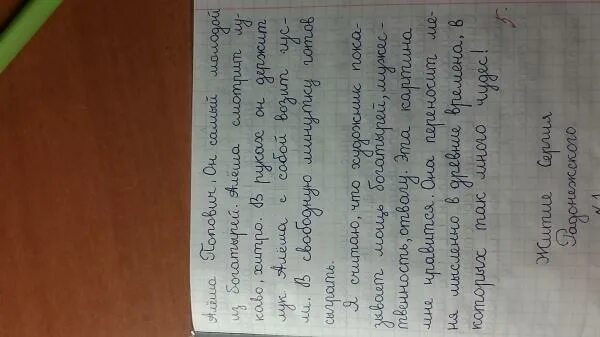 Алёша Попович. Он самый молодой
из богатырей. Алёша смотрит лу-
каво, хитро. В руках он держит
лук. Алёша с собой возит гус-
ли. В свободную минутку готов
сыграть.
Я считаю, что художник пока-
зывает мощь богатырей, мужес-
твенность, отвагу. Эта картина
мне нравится. Она переносит ме-
ня мысленно в древние времена, в
которых так много чудес!
5.
Житие Сергия
Радонежского.
№1